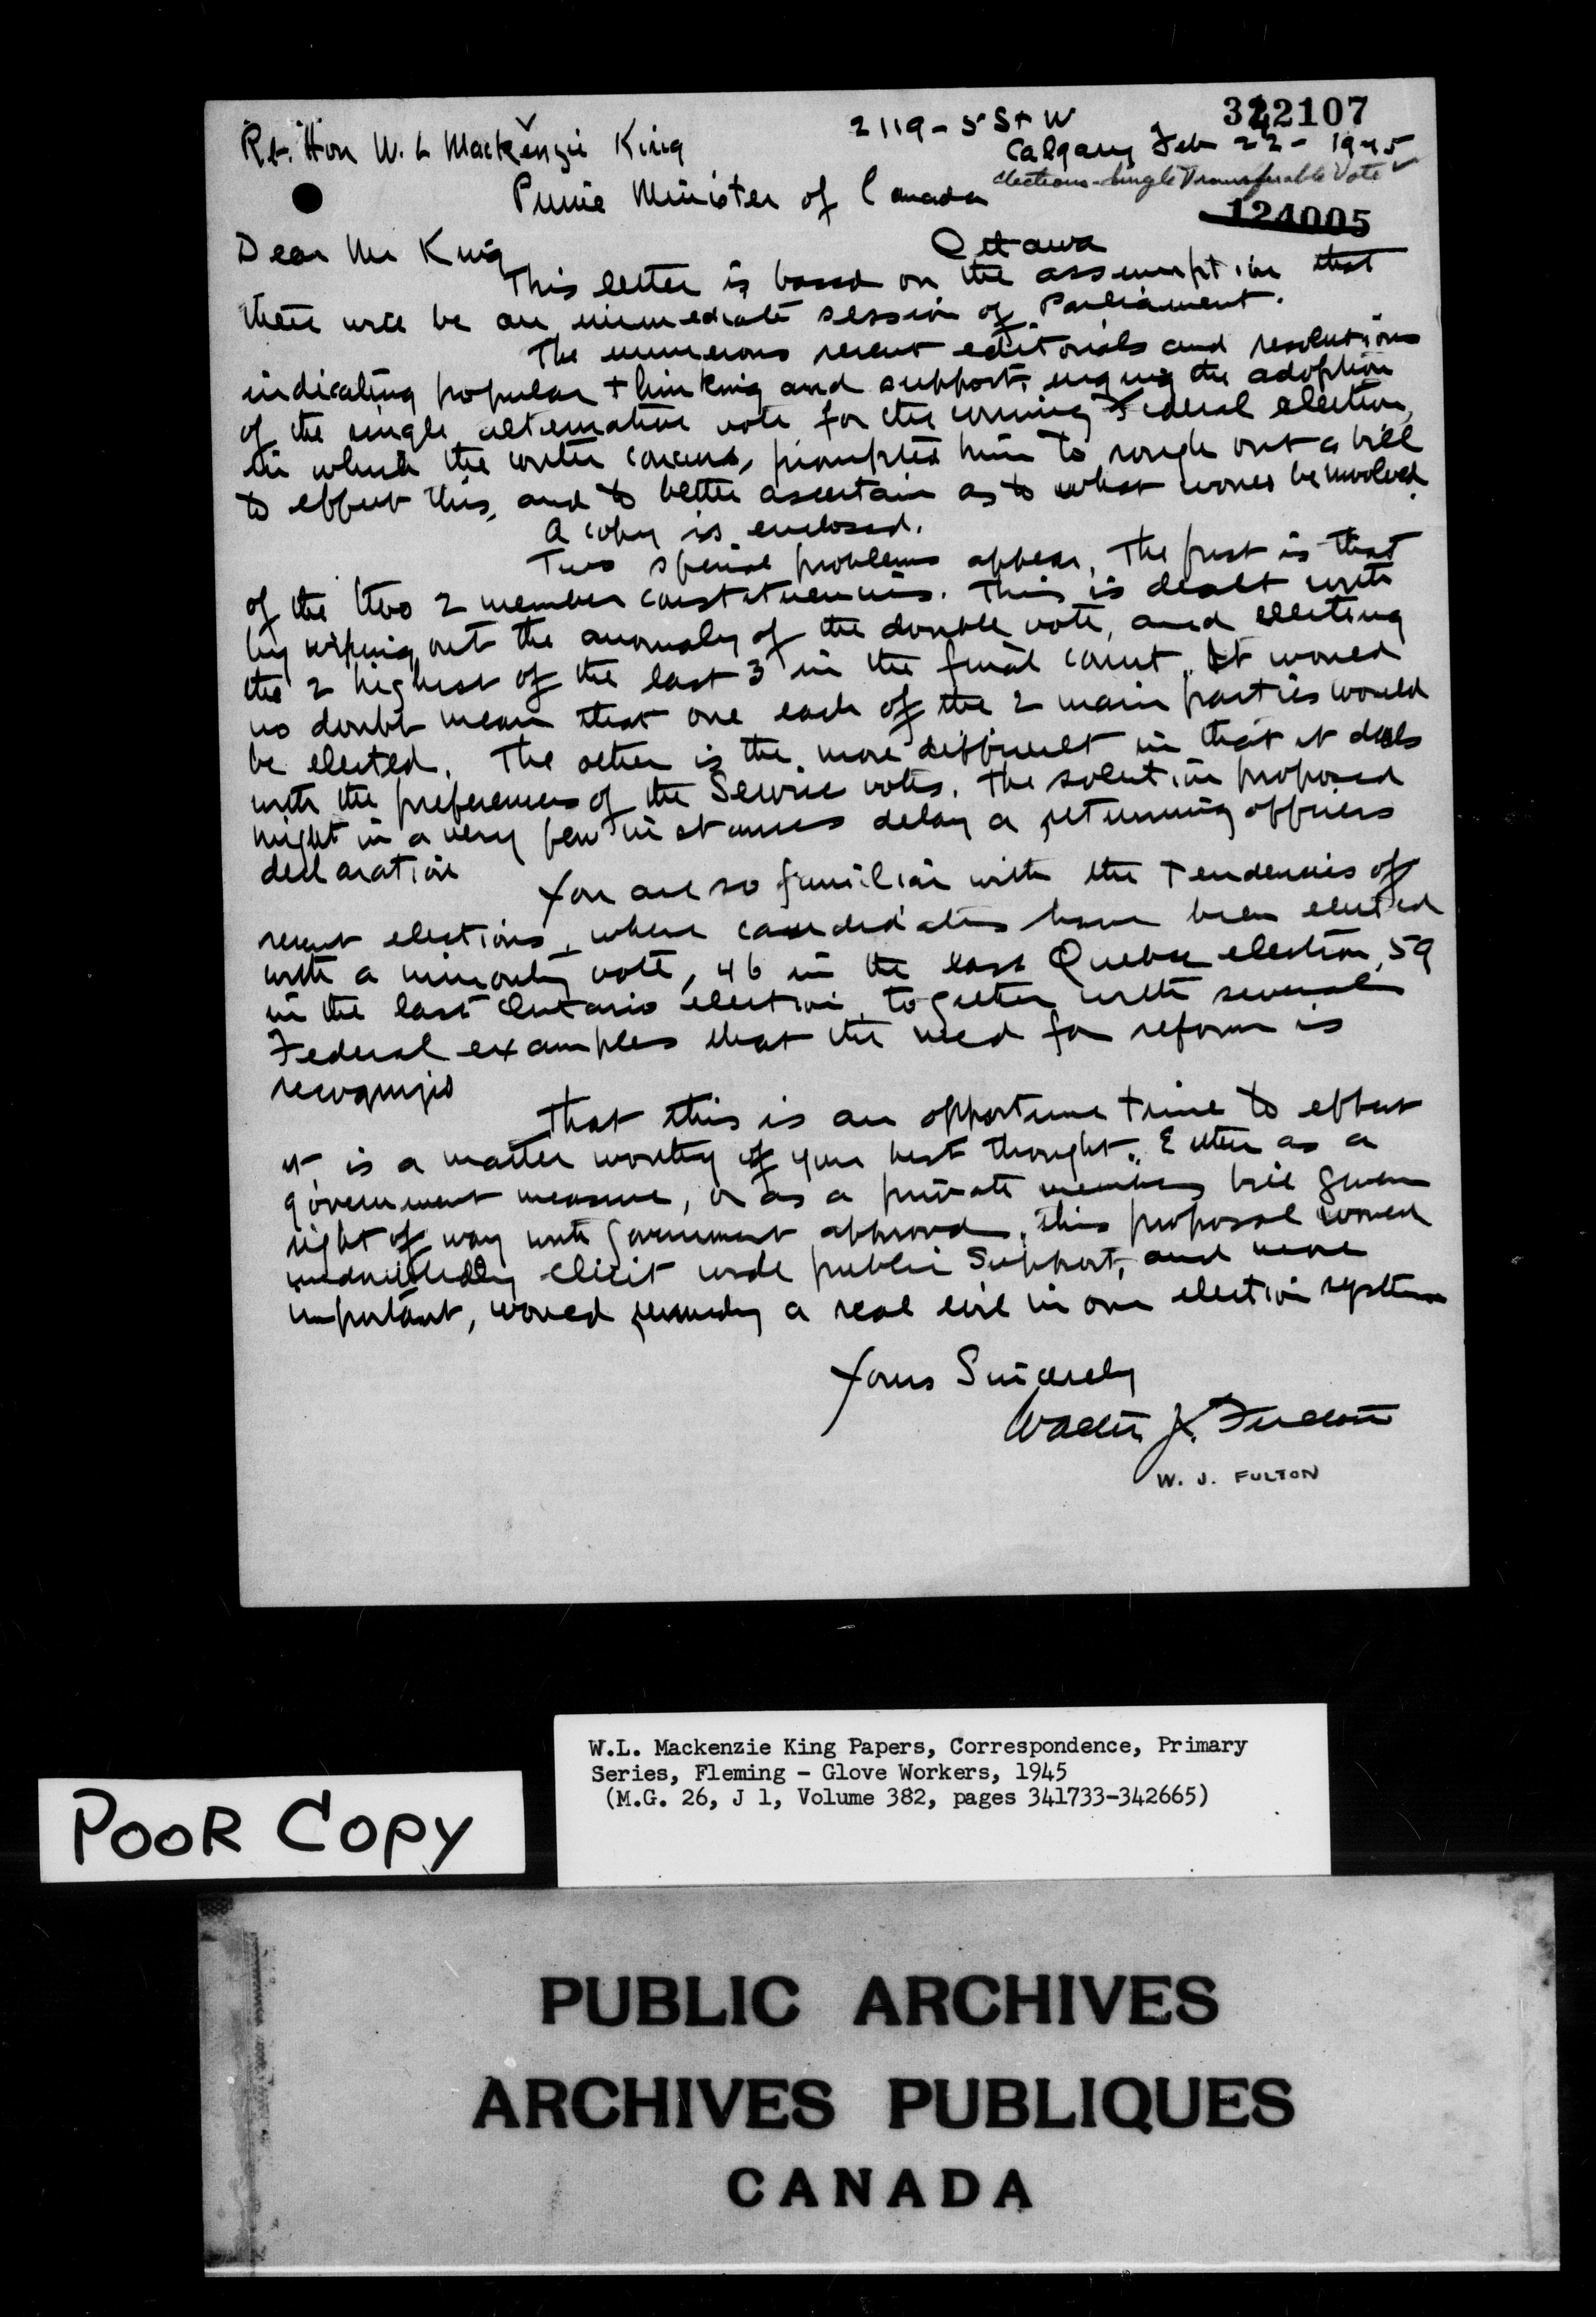 342107
2119 - 5 St W
Rt. Hon W. L Mackenzie King
Calgary Feb 22 - 1945
Elections - Single Transferable Vote
Prime Minister of Canada
124005
Ottawa
Dear Mr King
This letter is based on the assumption that
there will be an immediate session of Parliament.
The numerous recent editorials and resolutions
indicating popular thinking and support, urging the adoption
of the single alternative vote for the coming Federal election,
in which the writer concurs, prompted him to rough out a bill
to effect this, and to better ascertain as to what would be involved.
A copy is enclosed.
Two special problems appear. The first is that
of the two 2 member constituencies. This is dealt with
by wiping out the anomaly of the double vote, and electing
the 2 highest of the last 3 in the final count. It would
no doubt mean that one each of the 2 main parties would
be elected. The other is the more difficult in that it deals
with the preferences of the Service votes. The solution proposed
might in a very few instances delay a returning officers
declaration
You are so familiar with the tendencies of
recent elections, where candidates have been elected
with a minority vote, 46 in the last Quebec election, 59
in the last Ontario election, together with several
Federal examples that the need for reform is
recognized
That this is an opportune time to effect
it is a matter worthy of your best thought. Either as a
government measure, or as a private members bill given
right of way with Government approval, this proposal would
undoubtedly elicit wide public support, and more
important, would remedy a real evil in our election system
Yours Sincerely
Walter J. Fulton
W. J. FULTON
W.L. Mackenzie King Papers, Correspondence, Primary
Series, Fleming - Glove Workers, 1945
(M.G. 26, J 1, Volume 382, pages 341733-342665)
POOR COPY
PUBLIC ARCHIVES
ARCHIVES PUBLIQUES
CANADA